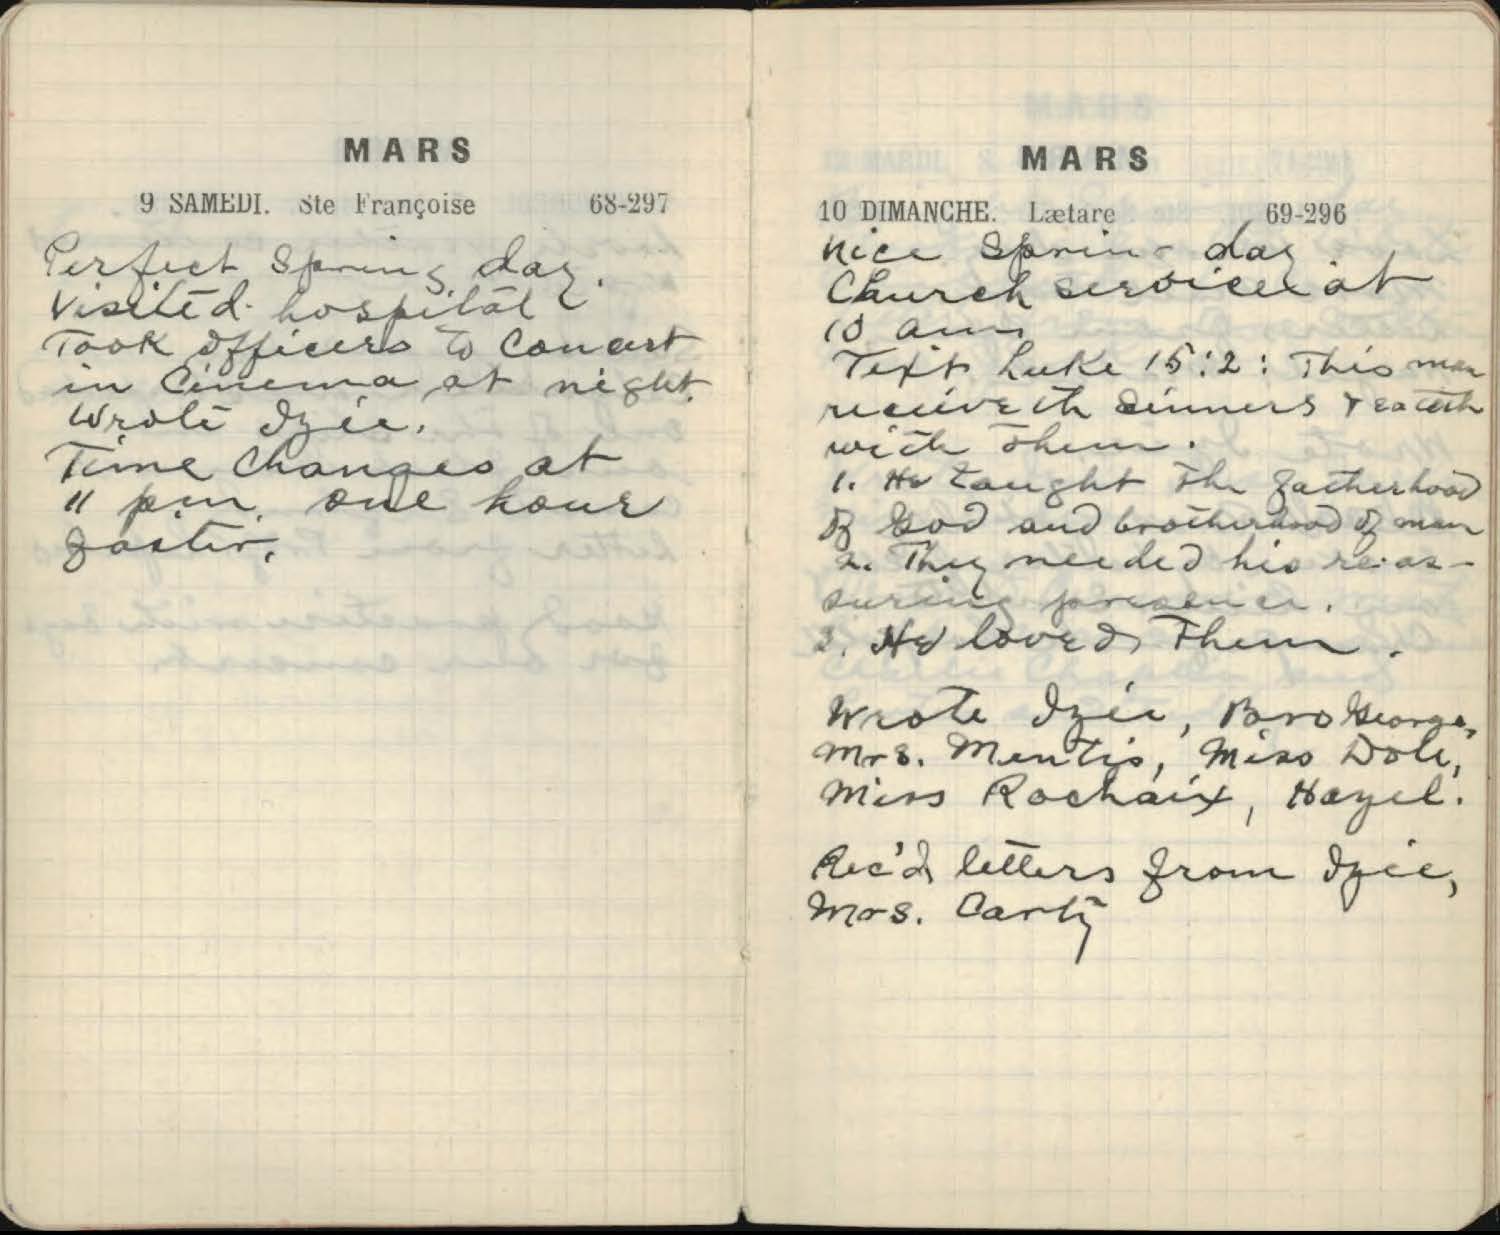 MARS
9 SAMEDI. Ste Françoise 68-297
Perfect Spring day.
Visited hospital
Took officers to Concert
in Cinema at night.
Wrote Izie.
Time Changes at
11 p.m. one hour
faster.
MARS
10 DIMANCHE. Lætare 69-296
Nice Spring day.
Church services at
10 am
Text Luke 15:2: This man
receiveth sinners & eateth
with them.
1. He taught the fatherhood
of God and brotherhood of man
2. They needed his re-as-
suring presence.
3. He loved Them.
Wrote Izie, Bro George,
Mrs. Mentis, Miss Dole,
Miss Rochaix, Hazel.
Rec'd letters from Izie,
Mrs. Carty